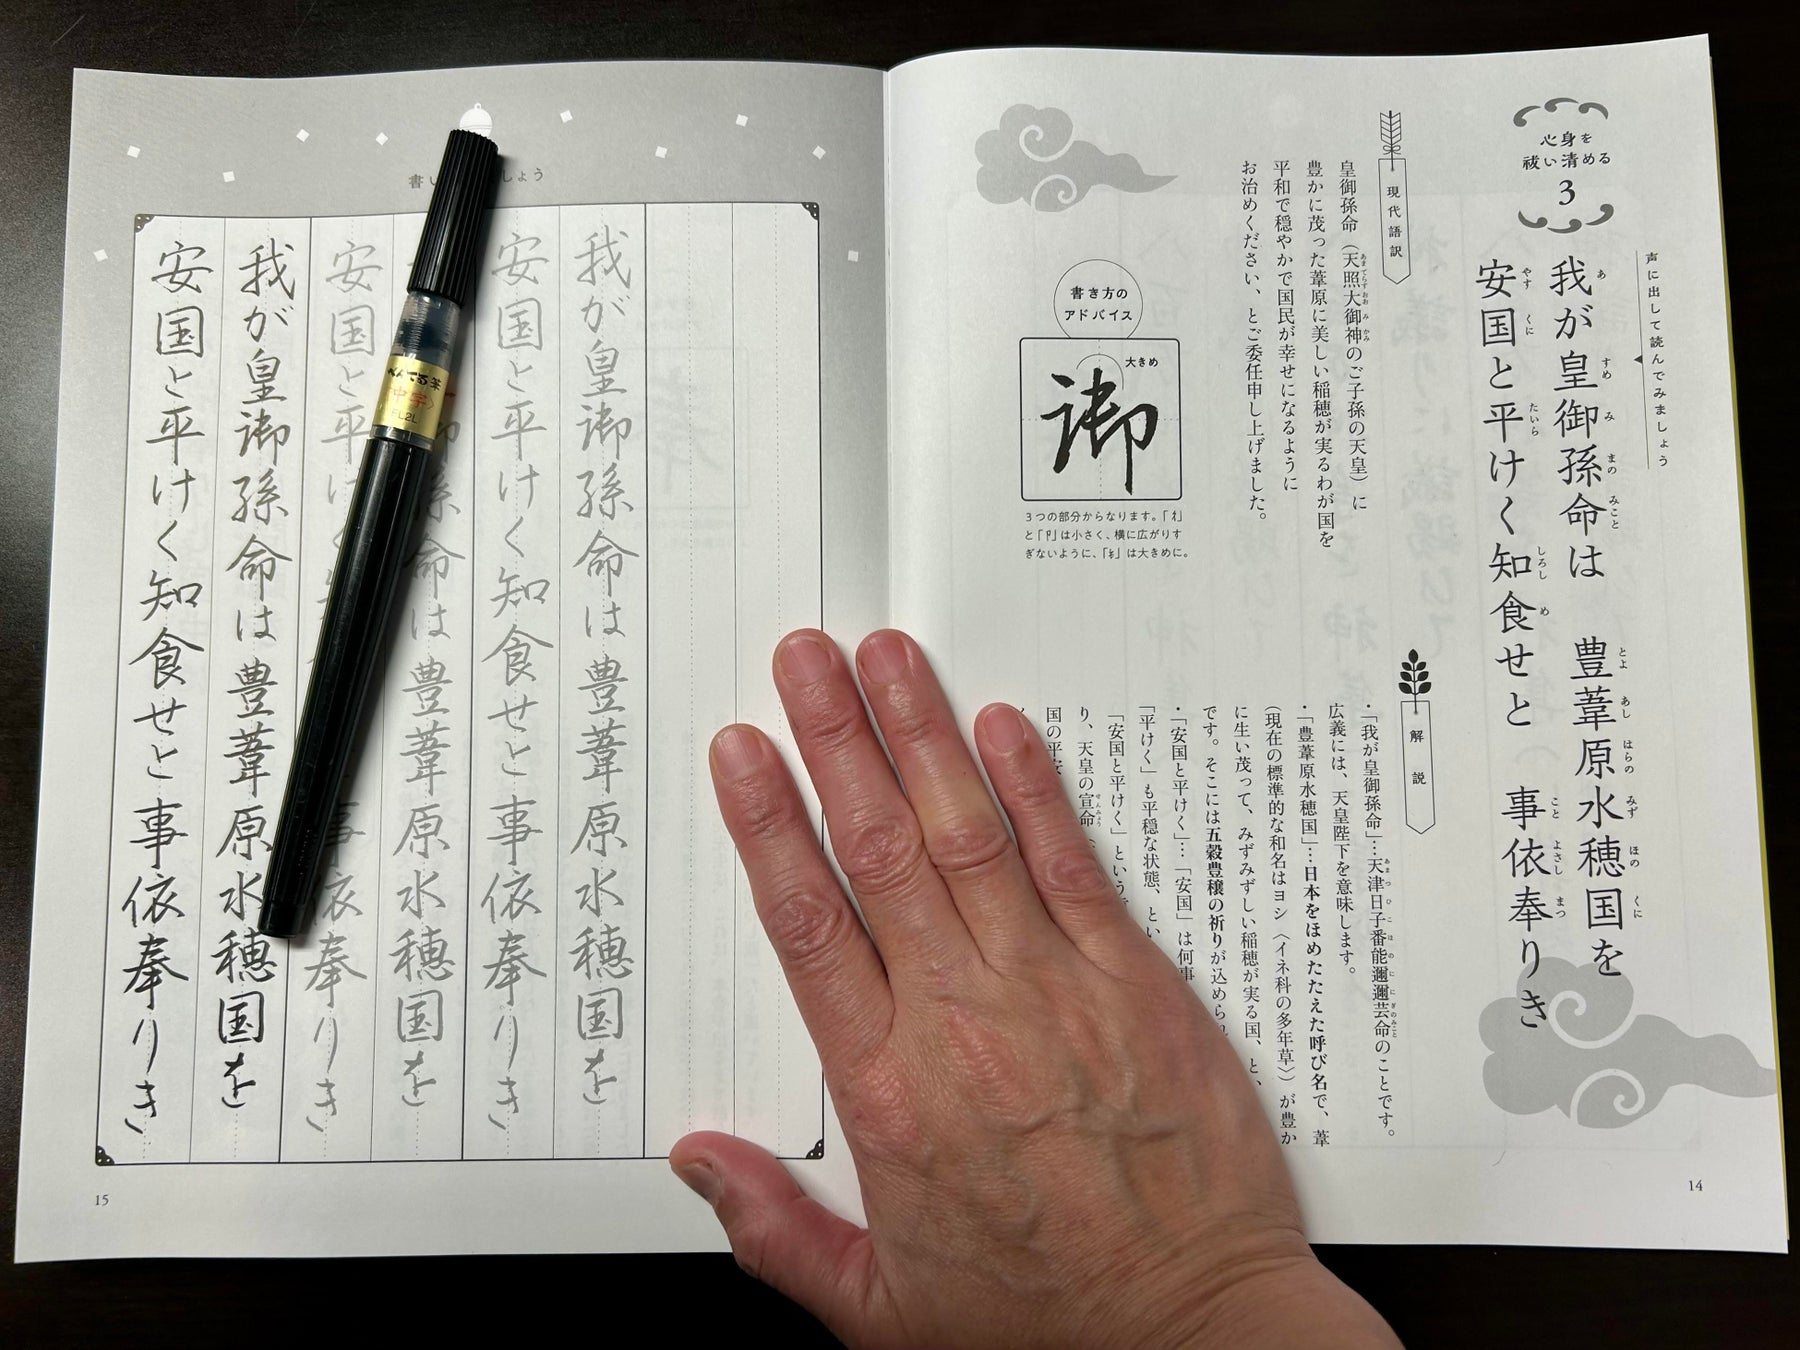 心身を
祓い清める
3
声に出して読んでみましょう
我が皇御孫命は 豊葦原水穂国を
あ すめ み まの みこと とよ あし はらの みず ほの くに
安国と平けく知食せと 事依奉りき
やす くに たいら しろし め こと よさし まつ
現代語訳
皇御孫命(天照大御神のご子孫の天皇)に
あまてらすおおみかみ
豊かに茂った葦原に美しい稲穂が実るわが国を
平和で穏やかで国民が幸せになるように
お治めください、とご委任申し上げました。
書き方の
アドバイス
大きめ
御
3つの部分からなります。「彳」
と「卩」は小さく、横に広がりす
ぎないように、「」は大きめに。
解説
・「我が皇御孫命」…天津日子番能邇邇芸命のことです。
あまつひこほのににぎのみこと
広義には、天皇陛下を意味します。
・「豊葦原水穂国」…日本をほめたたえた呼び名で、葦
(現在の標準的な和名はヨシ〈イネ科の多年草〉)が豊か
に生い茂って、みずみずしい稲穂が実る国、と、
です。そこには五穀豊穣の祈りが込められ
・「安国と平けく」…「安国」は何事
「平けく」も平穏な状態、とい
「安国と平けく」という
り、天皇の宣命(
せんみょう
国の平安
14
書い しょう
我が皇御孫命は豊葦原水穂国を
安国と平けく知食せと事依奉りき
は豊葦原水穂国を
安国と平け 事依奉りき
我が皇御孫命は豊葦原水穂国を
安国と平けく知食せと事依奉りき
ぺんてる筆
〈中字〉
FL2L
15